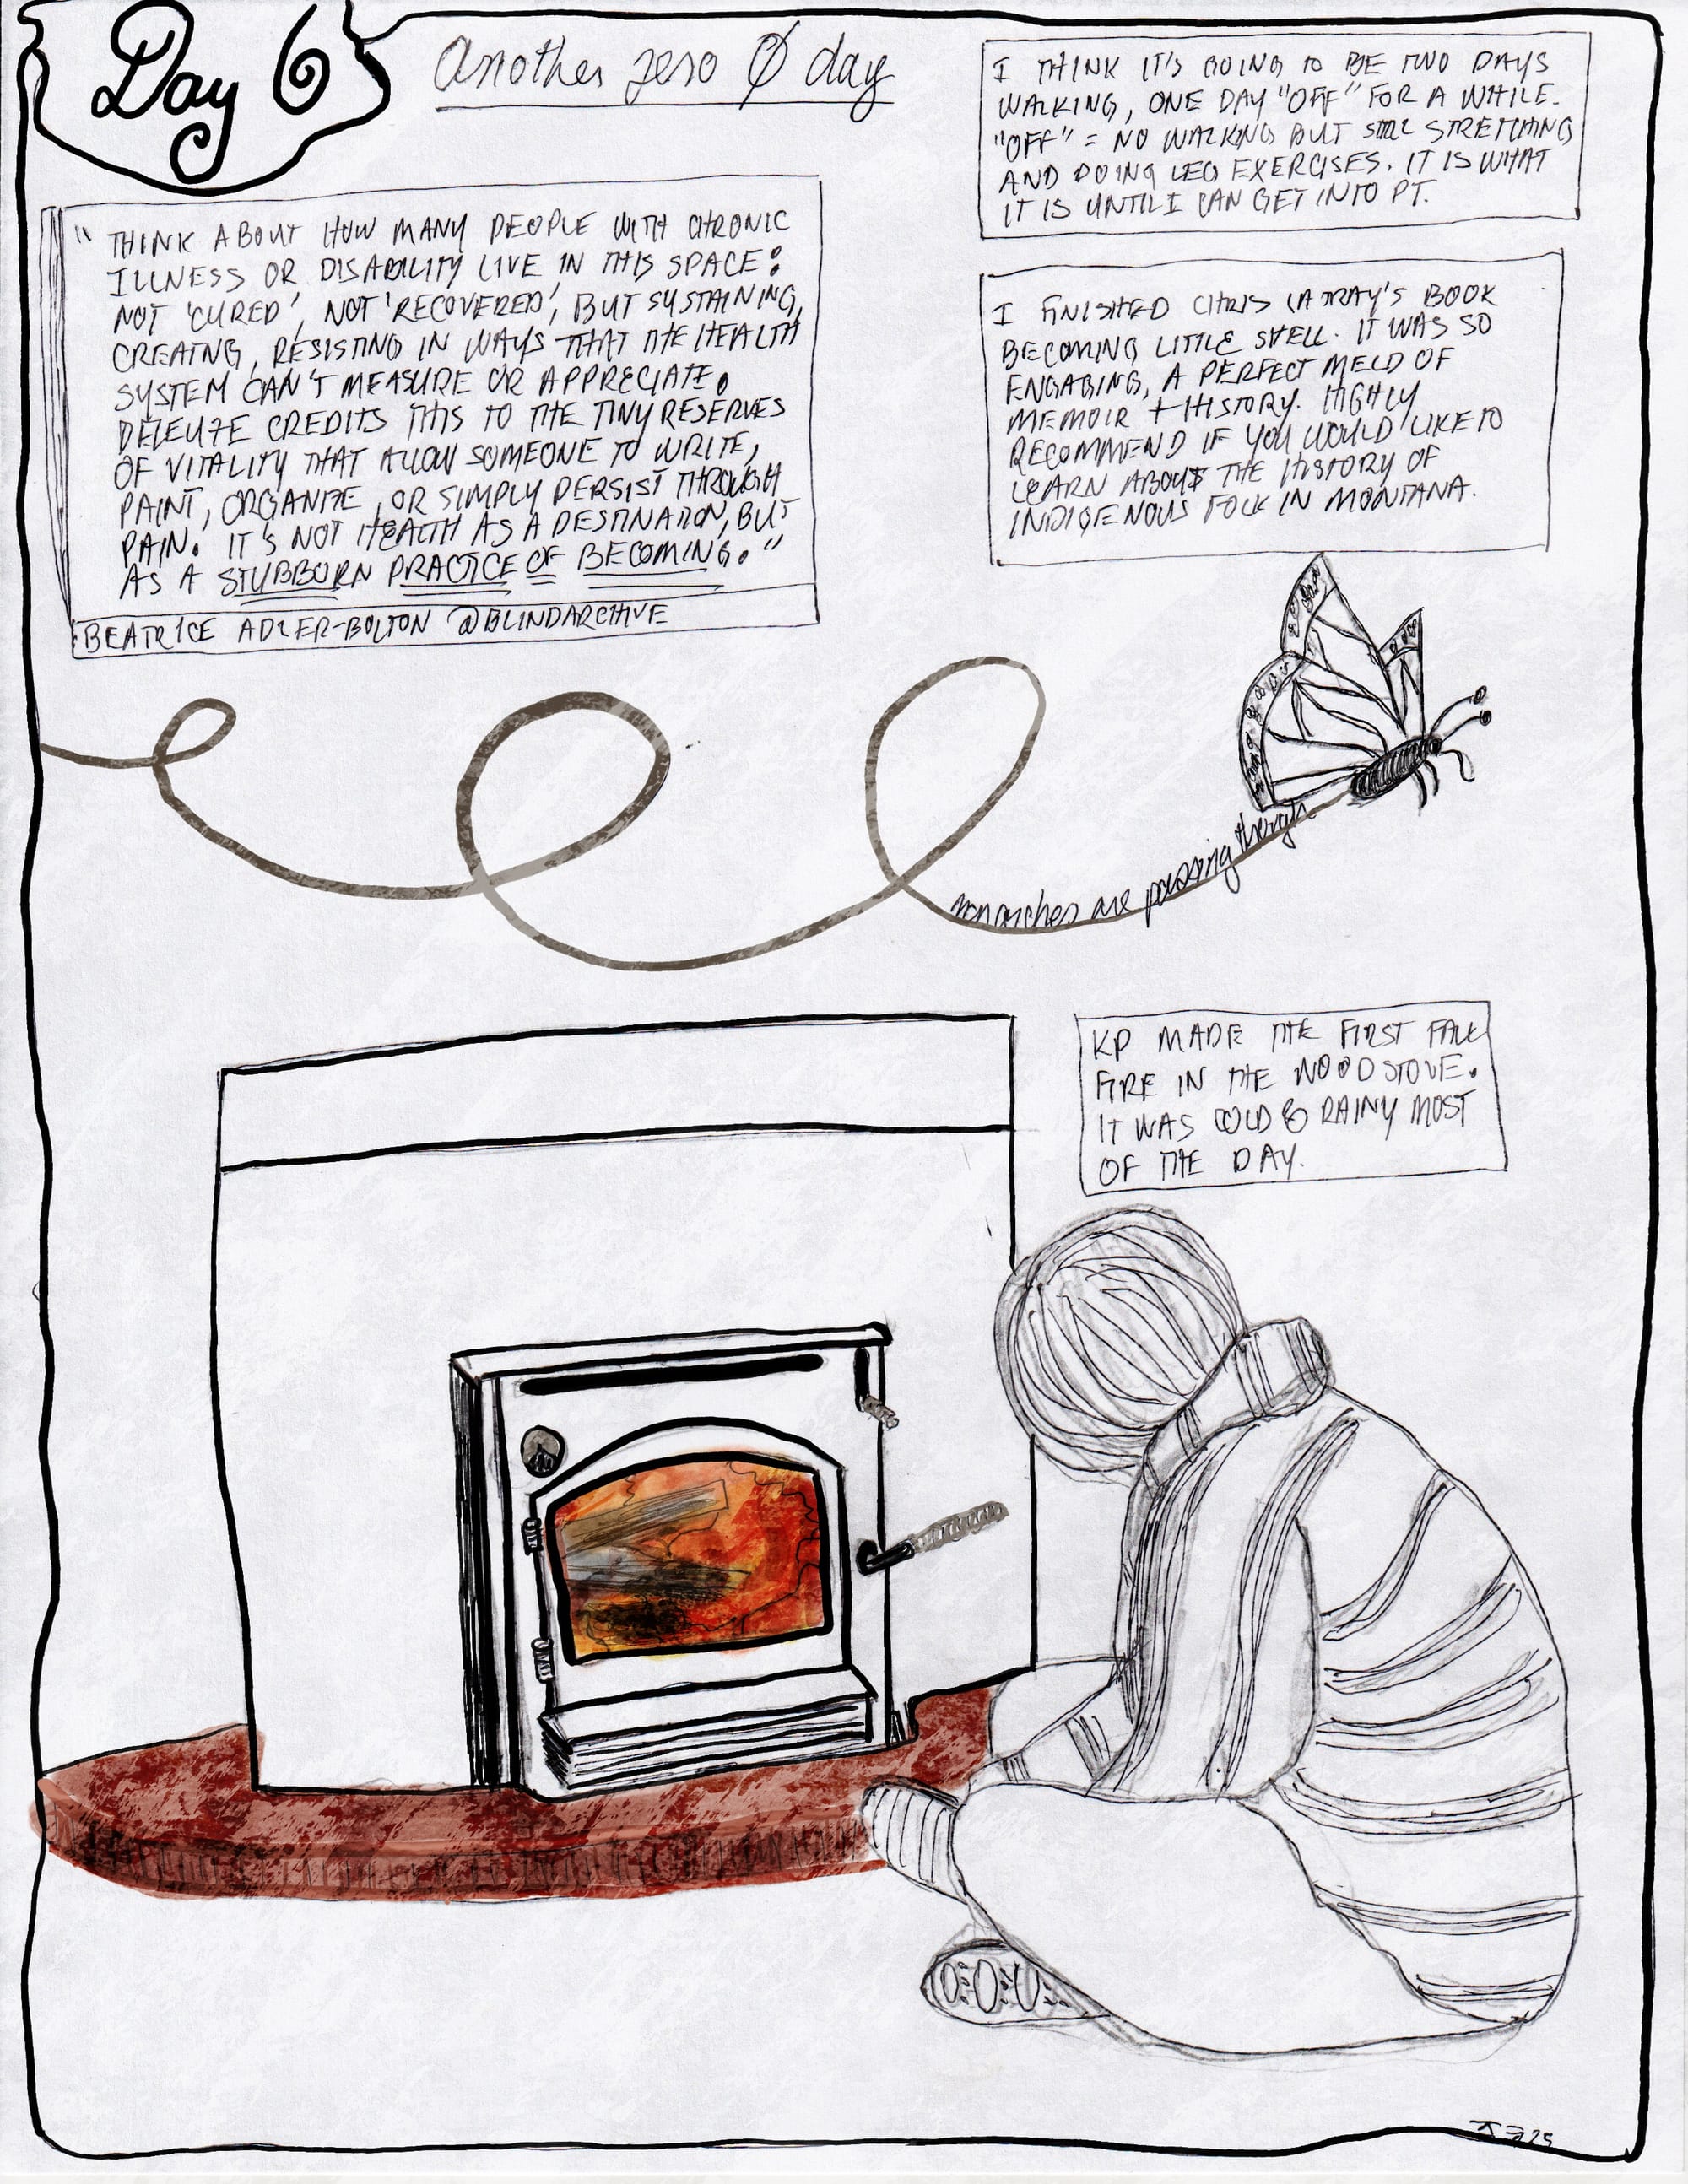 Day 6
another zero Ø day
I THINK IT'S GOING TO BE TWO DAYS
WALKING, ONE DAY "OFF" FOR A WHILE.
"OFF" = NO WALKING BUT STILL STRETCHING
AND DOING LEG EXERCISES. IT IS WHAT
IT IS UNTIL I CAN GET INTO PT.
"THINK ABOUT HOW MANY PEOPLE WITH CHRONIC
ILLNESS OR DISABILITY LIVE IN THIS SPACE:
NOT 'CURED', NOT 'RECOVERED', BUT SUSTAINING,
CREATNG, RESISTING IN WAYS THAT THE HEALTH
SYSTEM CAN'T MEASURE OR APPRECIATE.
DELEUZE CREDITS THIS TO THE TINY RESERVES
OF VITALITY THAT ALLOW SOMEONE TO WRITE,
PAINT, ORGANIZE, OR SIMPLY PERSIST THROUGH
PAIN. IT'S NOT HEALTH AS A DESTINATION, BUT
AS A STUBBORN PRACTICE OF BECOMING."
BEATRICE ADLER-BOLTON @BLINDARCHIVE
I FINISHED CHRIS LA TRAY'S BOOK
BECOMING LITTLE SHELL. IT WAS SO
ENGAGING, A PERFECT MELD OF
MEMOIR + HISTORY. HIGHLY
RECOMMEND IF YOU WOULD LIKE TO
LEARN ABOUT THE HISTORY OF
INDIGENOUS FOLK IN MONTANA.
monarches are passing through
KP MADE THE FIRST FALL
FIRE IN THE WOODSTOVE.
IT WAS COLD & RAINY MOST
OF THE DAY.